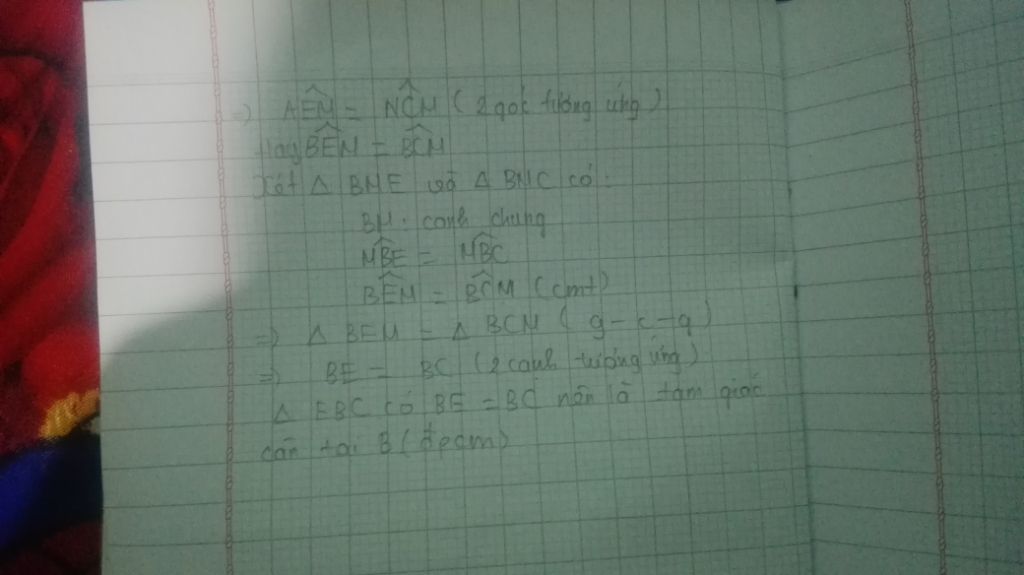 =) AÊM = NĈM ( 2 góc tương ứng )
Hay BÊM = BĈM
Xét Δ BME và Δ BMC có :
BM : cạnh chung
MB̂E = MB̂C
BÊM = BĈM (cmt)
=) Δ BEM = Δ BCM ( g - c - g )
=) BE = BC ( 2 cạnh tương ứng )
Δ EBC có BE = BC nên là tam giác
cân tại B ( đpcm )